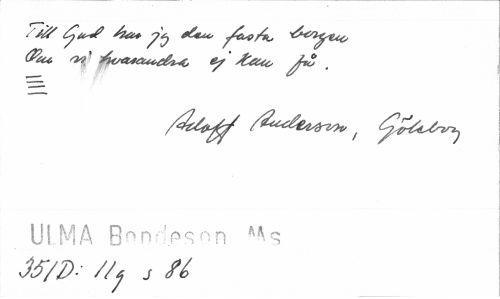 Till Gud har jg den fasta borgen
Om vi hvarandra ej kan få.
Adolf Anderson, Göteborg
ULMA Bondeson Ms
351D: 11g s 86